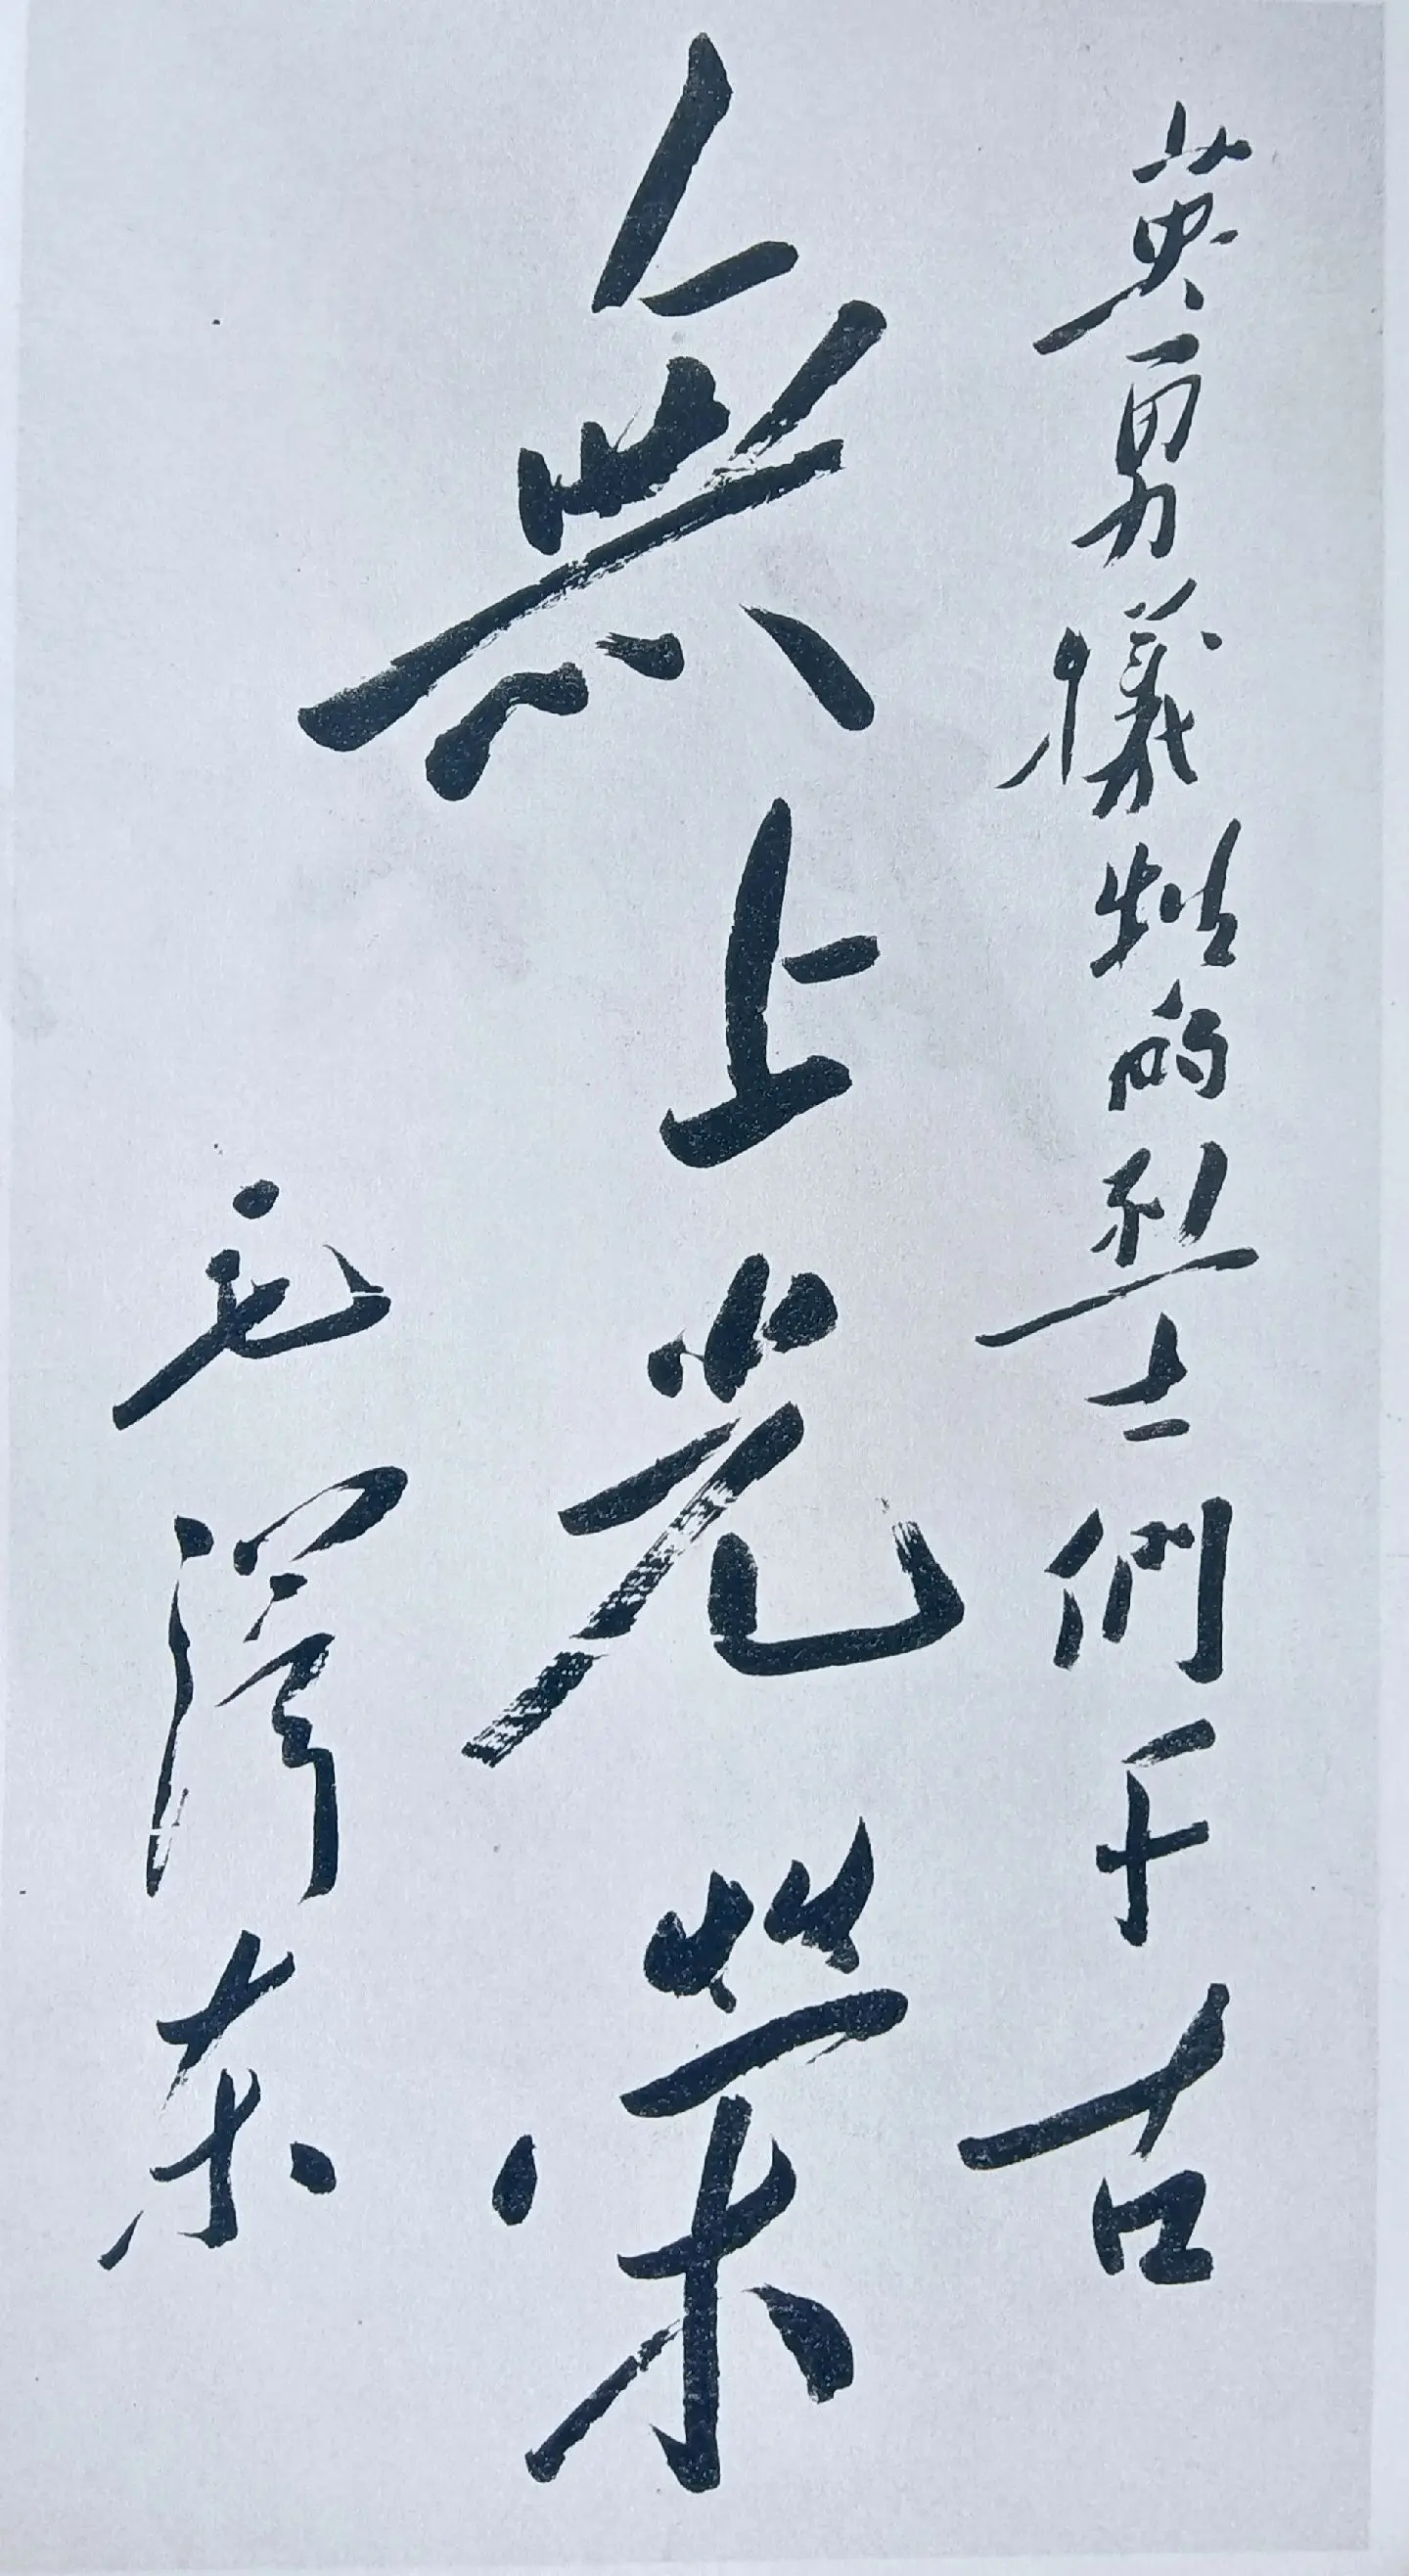 英勇犧牲的烈士們千古
無上光榮
毛澤東